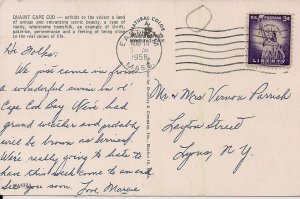 QUAINT CAPE COD - unfolds to the visitor a land
of unique and entrancing scenic beauty, a type of
hardy, wholesome homefolk, an example of thrift,
patience, perseverance and a feeling of being close
to the real values of life.
Hi Folks:
We just came in from
a wonderful swim in ol'
Cape Cod Bay. We've had
grand weather and probably
will be brown as berries!
We're really going to hate to
have this week come to an end
See you soon. Love, Marcia
NATURAL COLOR
AUG 14
1958
MASS
3¢
LIBERTY
Mr & Mrs Vernon Parrish
Layton Street
Lyons, N.Y.